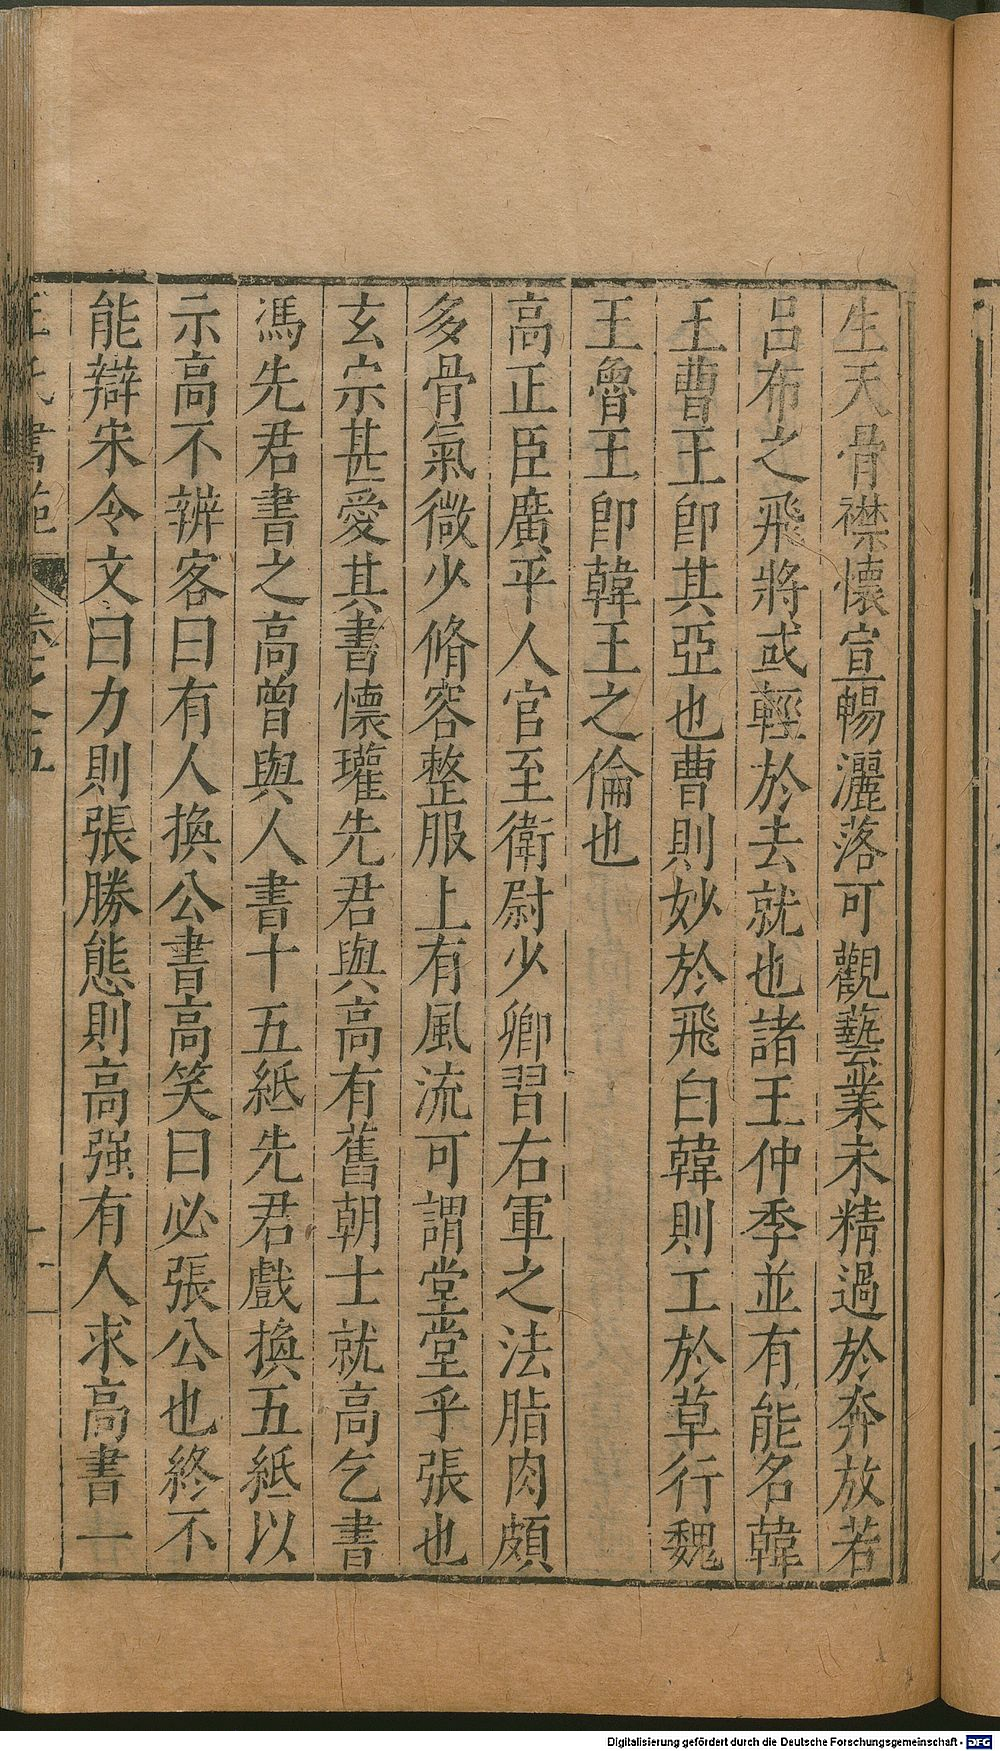 生天骨襟懷宣暢灑落可觀藝業未精過於奔放若
呂布之飛將或輕於去就也諸王仲季並有能名韓
王曹王即其亞也曹則妙於飛白韓則工於草行魏
王魯王即韓王之倫也
高正臣廣平人官至衛尉少卿習右軍之法脂肉頗
多骨氣微少脩容整服上有風流可謂堂堂乎張也
玄宗甚愛其書懷瓘先君與高有舊朝士就高乞書
馮先君書之高曾與人書十五紙先君戲換五紙以
示高不辨客曰有人換公書高笑曰必張公也終不
能辯宋令文曰力則張勝態則高强有人求高書一
王氏書苑 卷之五
Digitalisierung gefördert durch die Deutsche Forschungsgemeinschaft - DFG